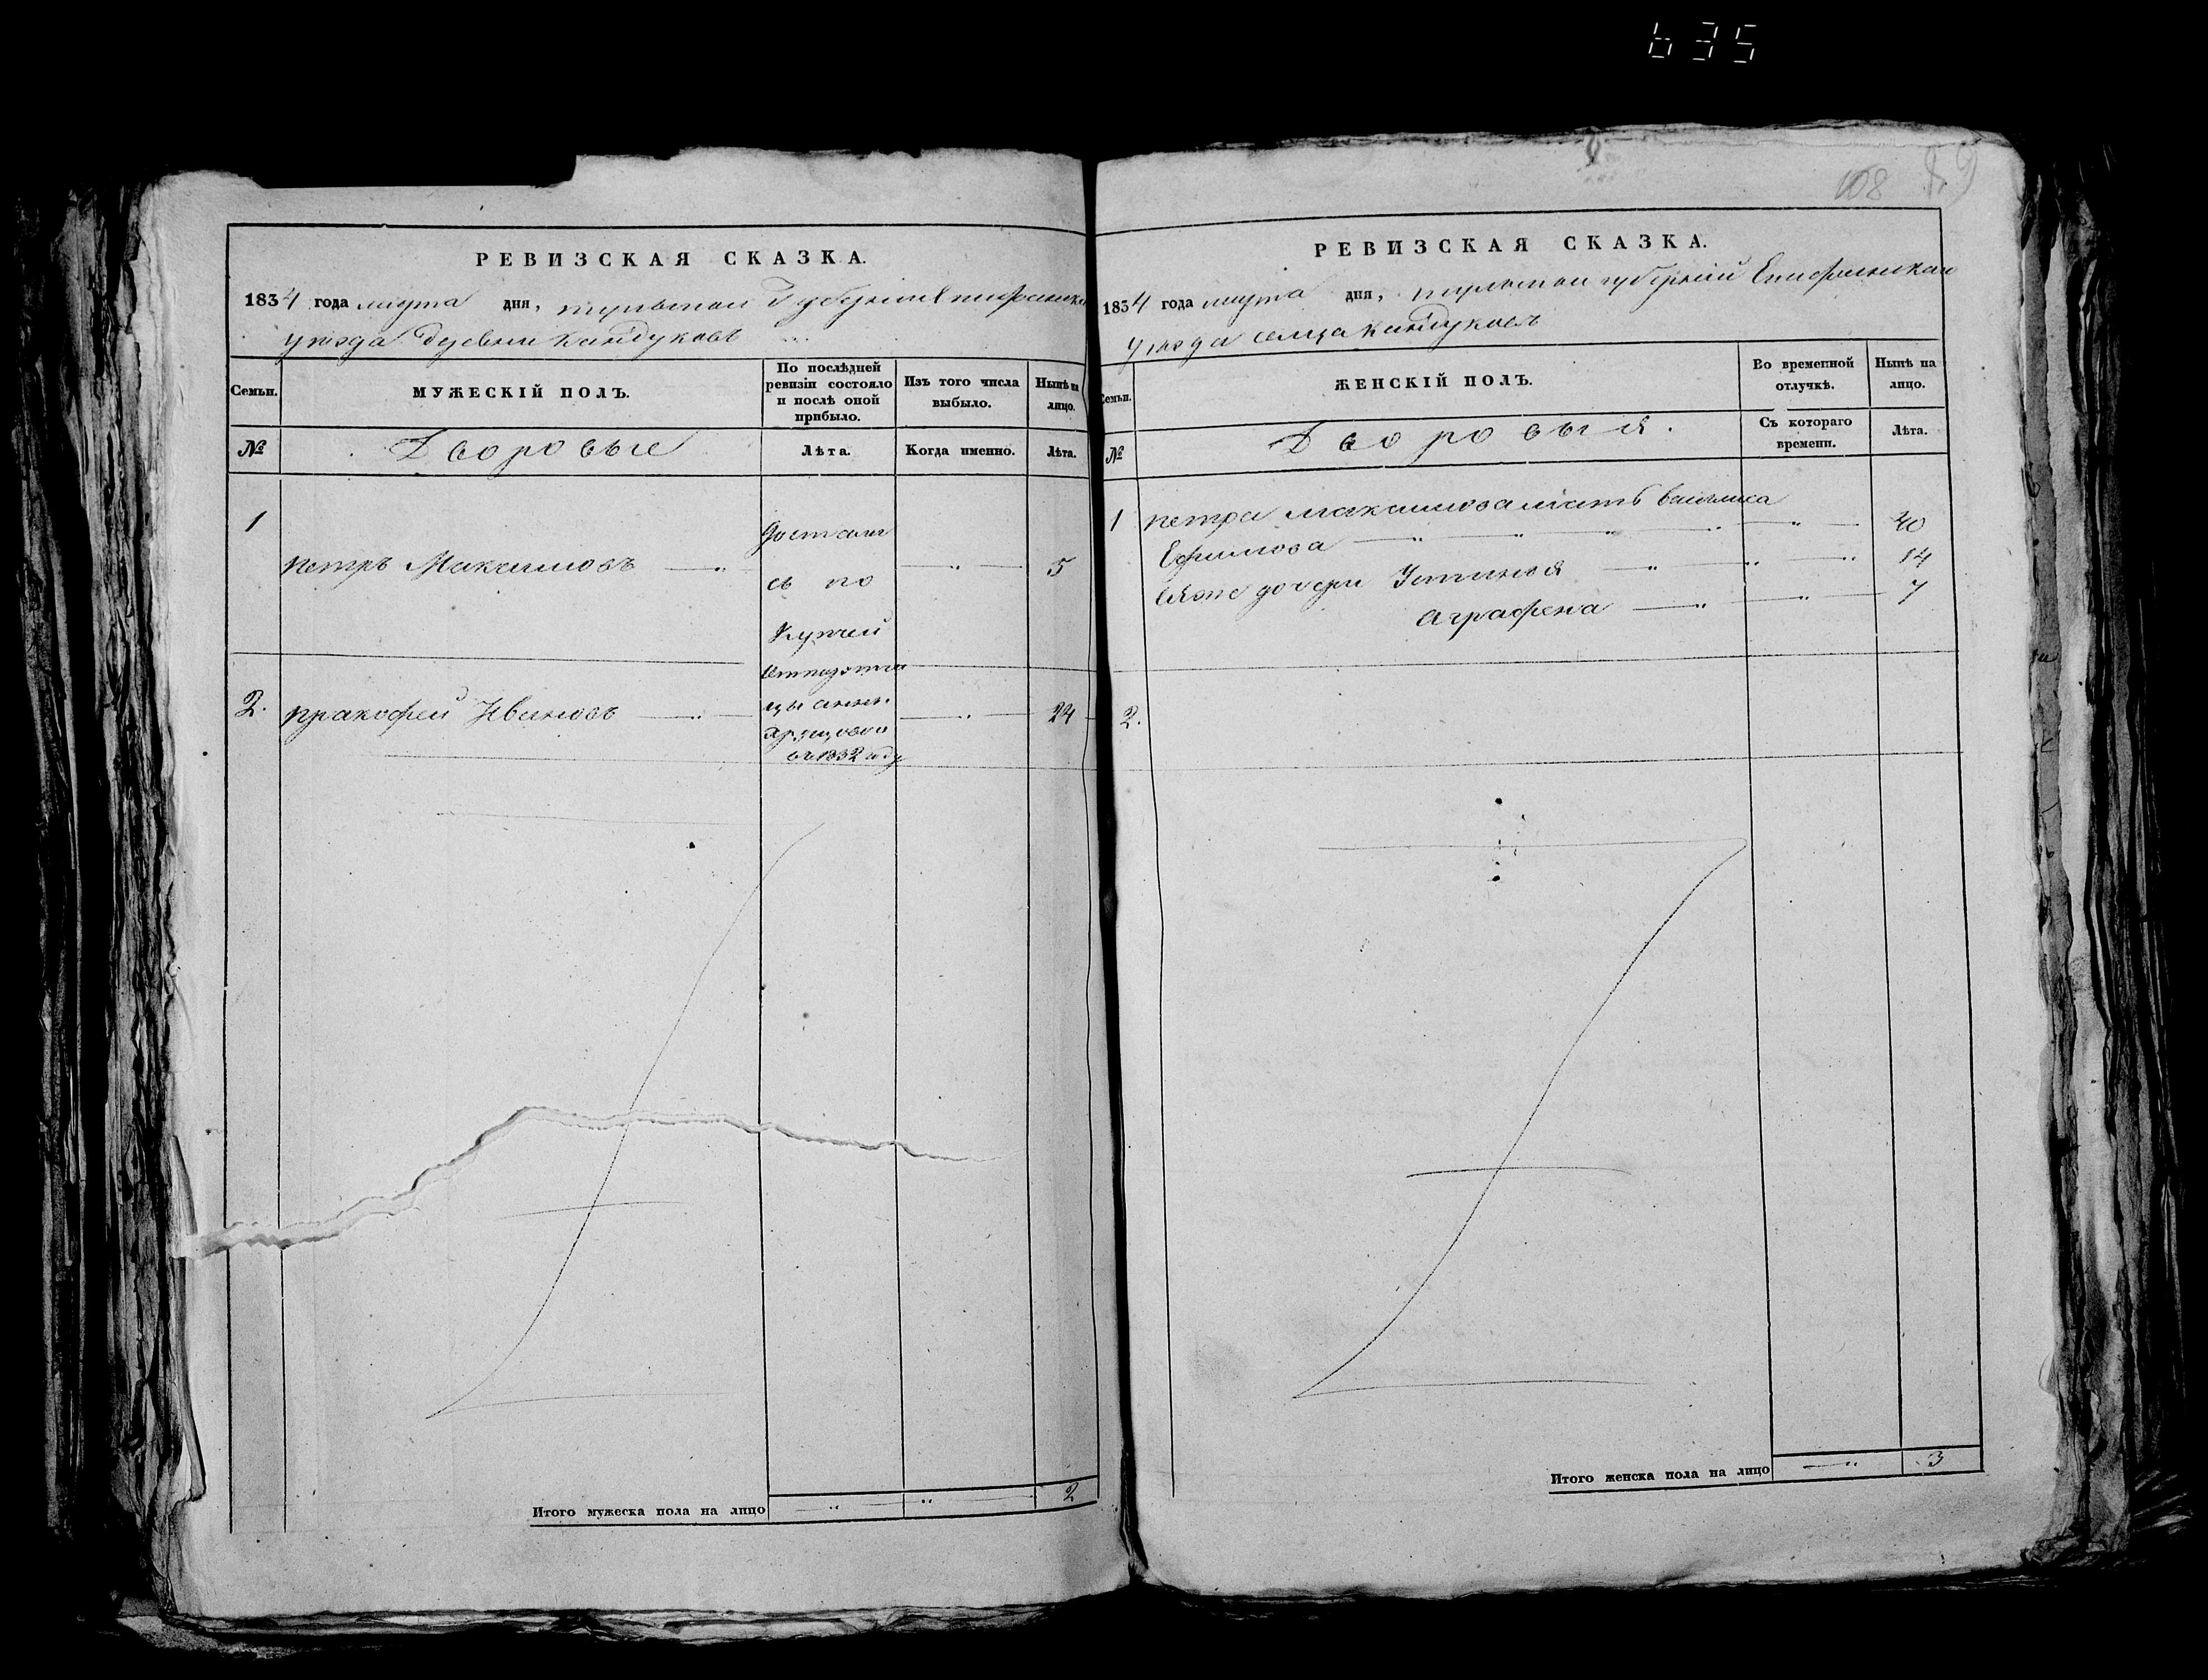 635
108 89
РЕВИЗСКАЯ СКАЗКА.
1834 года марта дня, тульской Губернии Епифанска
уезда деревни Кандуковъ
Семьи.
МУЖЕСКІЙ ПОЛЪ.
По послѣдней ревизіи состояло и послѣ оной прибыло.
Изъ того числа выбыло.
Нынѣ на лицо.
№
Дворовые
Лѣта.
Когда именно.
Лѣта.
1
петръ Максимовъ
достали
сь по
Купчей
5
2.
пракофей Ивановъ
цы анны
въ 1832 году
24
Итого мужеска пола на лицо
2
РЕВИЗСКАЯ СКАЗКА.
1834 года марта дня, тульской губерний Епифанскаи
уезда селца Кандуковъ
Семьи.
ЖЕНСКІЙ ПОЛЪ.
Во временной отлучкѣ.
Нынѣ на лицо.
№
Дворовыя.
Съ котораго времени.
Лѣта.
1 петра максимова мать василиса
Ефимова 40
Еяже дочери Устинья 14
аграфена 7
2.
Итого женска пола на лицо
3